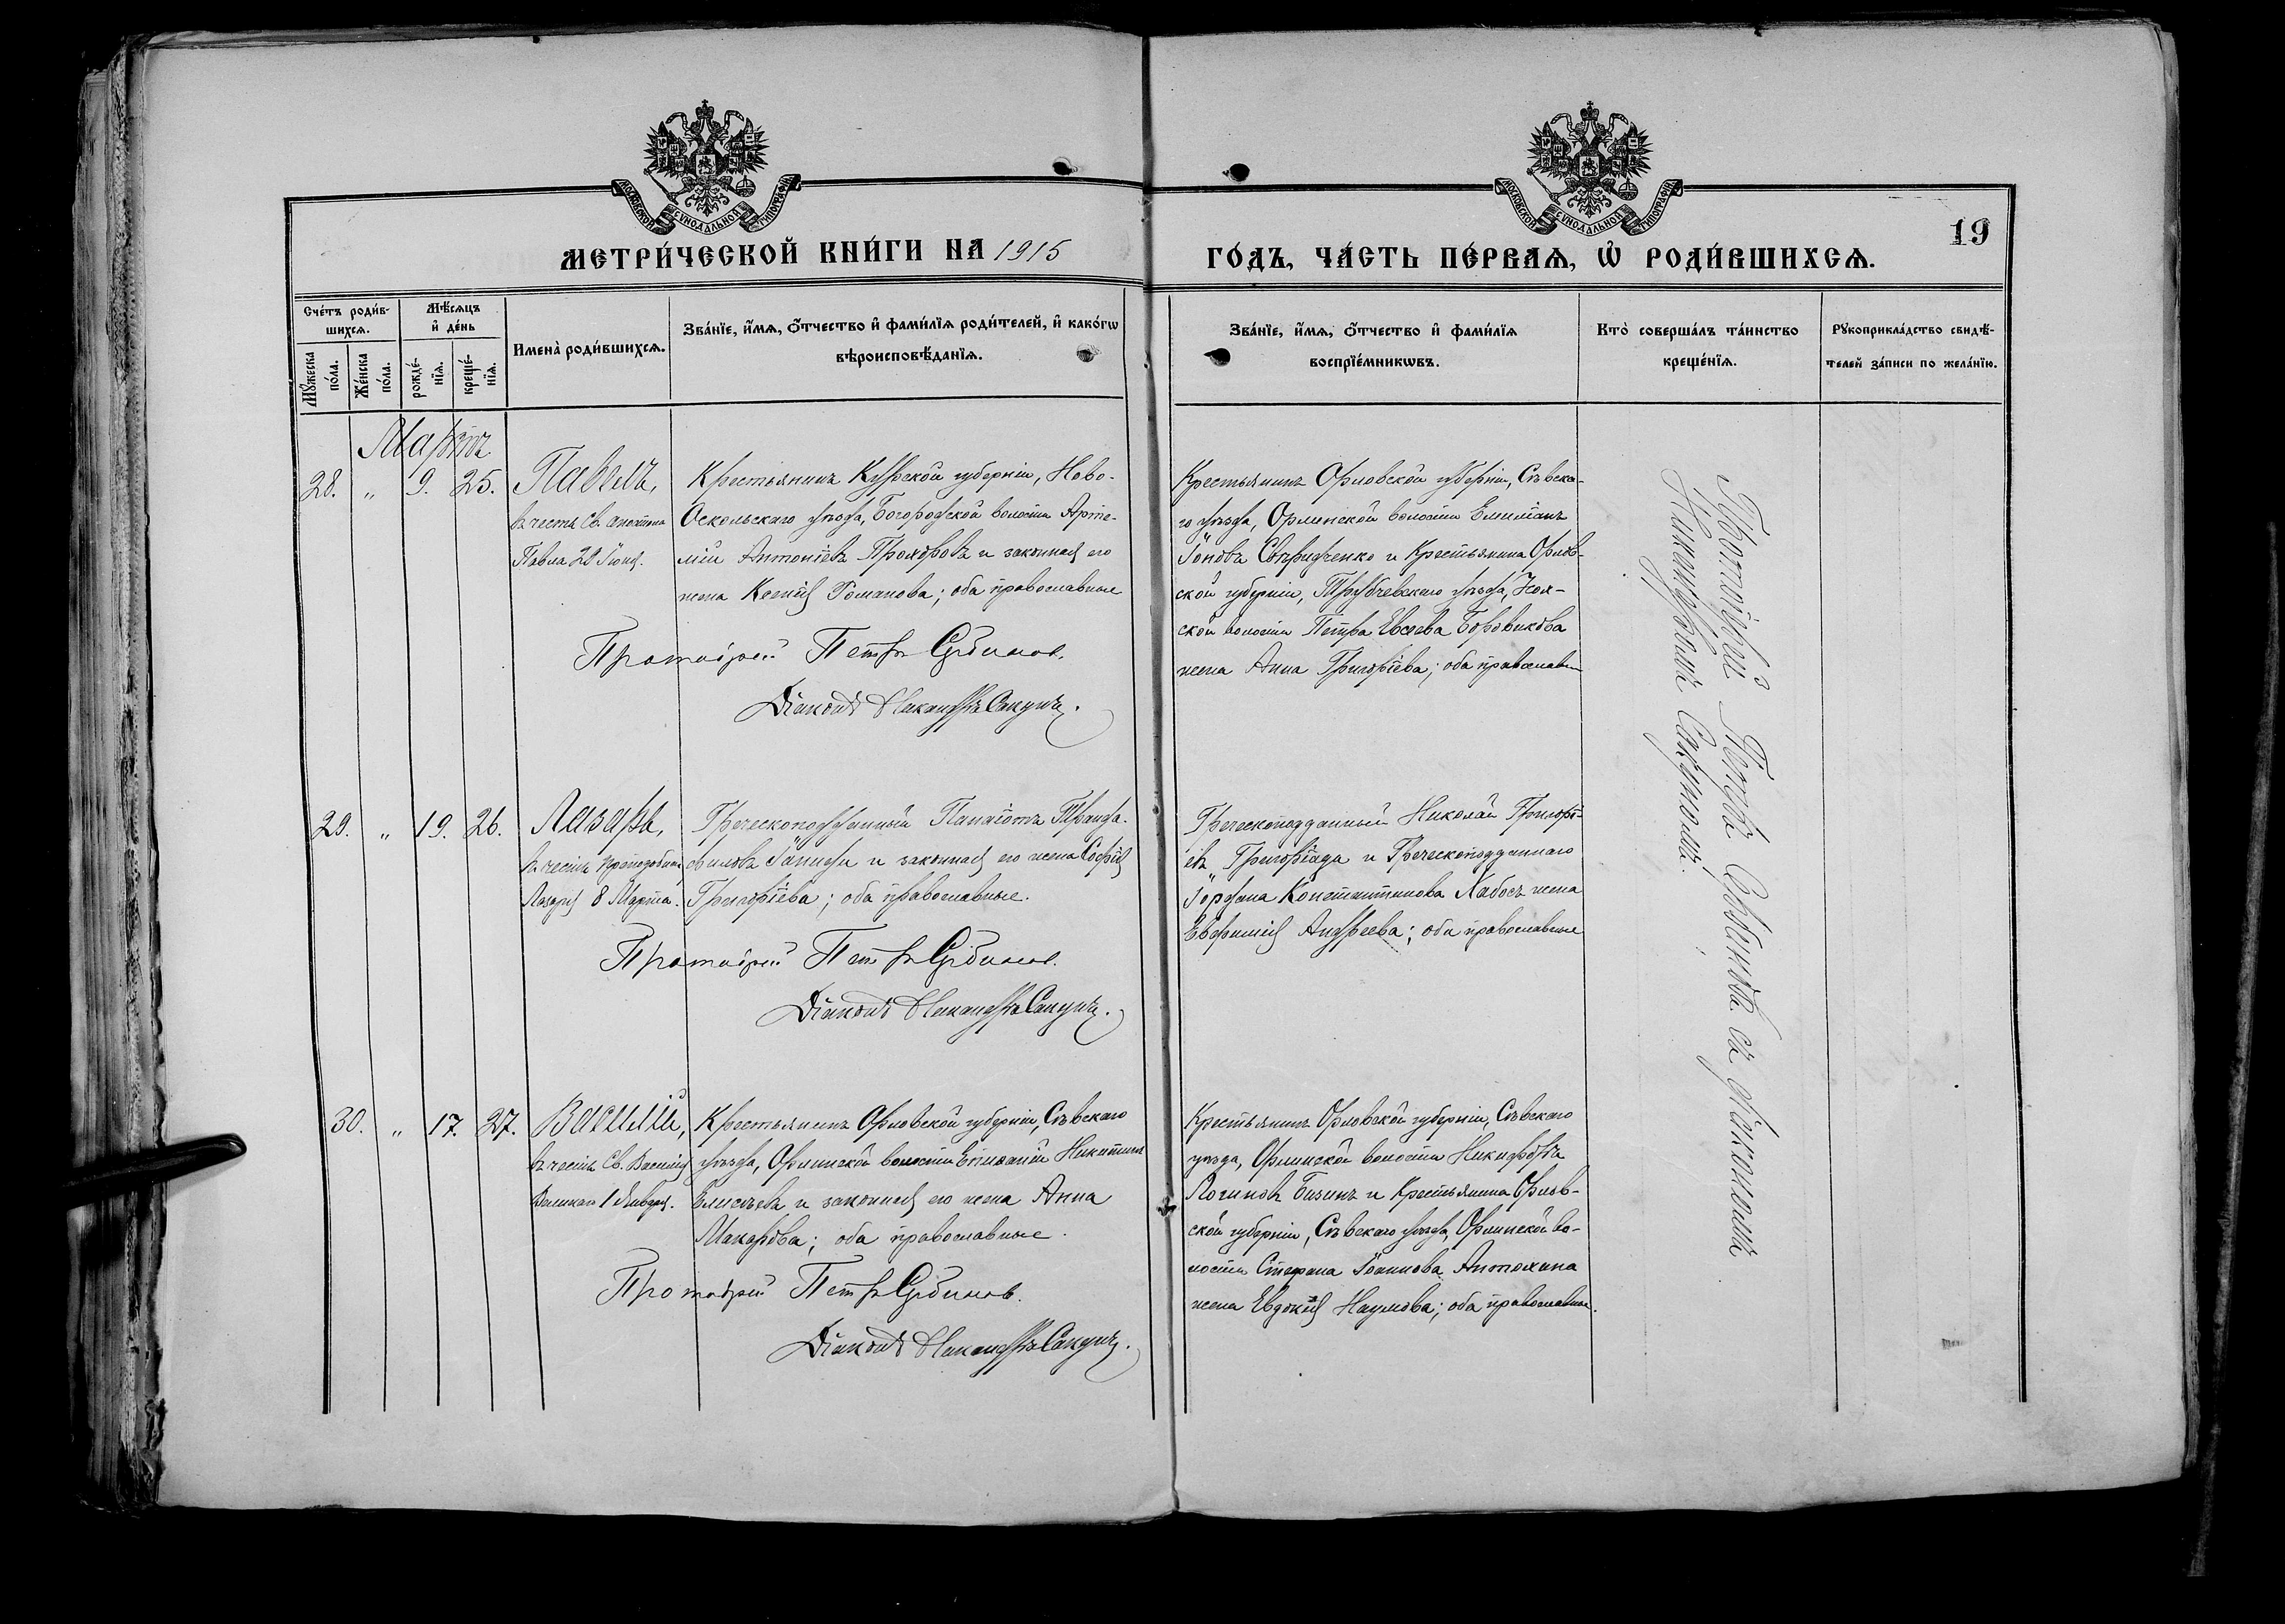 МОСКОВСКОЙ СѴНОДАЛЬНОЙ ТИПОГРАФІИ
МОСКОВСКОЙ СѴНОДАЛЬНОЙ ТИПОГРАФІИ
19
МЕТРИ́ЧЕСКОЙ КНИ́ГИ НА 1915
ГО́ДЪ, ЧА́СТЬ ПЕ́РВАѦ, Ѡ҆ РОДИ́ВШИХСѦ.
Сче́тъ роди́в-
шихсѧ.
Мѣ́сѧцъ
и҆ де́нь
Мꙋ́жеска
по́ла.
Же́нска
по́ла.
рожде́-
нїѧ.
креще́-
нїѧ.
Имена̀ роди́вшихсѧ.
Зва́нїе, и҆́мѧ, ѻ҆́тчество и҆ фами́лїѧ роди́телей, и҆ како́гѡ
вѣроисповѣ́данїѧ.
Зва́нїе, и҆́мѧ, ѻ҆́тчество и҆ фами́лїѧ
воспрїе́мникѡвъ.
Кто̀ соверша́лъ та́инство
креще́нїѧ.
Рꙋкоприкла́дство свидѣ́-
телей за́писи по жела́нїю.
Мартъ
28. „ 9. 25. Павелъ,
въ честь Св. апостола
Павла 29 Іюня.
Крестьянинъ Курской губерніи, Ново-
Оскольскаго уѣзда, Богородской волости Арте-
мій Антоніевъ Прохоровъ и законная его
жена Ксенія Романова; оба православные
Протоіерей Петръ Сербиновъ.
Діаконъ Никаноръ Сакунъ.
Крестьянинъ Орловской губерніи, Сѣвска-
го уѣзда, Орлинской волости Емиліанъ
Іоновъ Свириденко и Крестьянина Орлов-
ской губерніи, Трубчевскаго уѣзда,
ской волости Петра Евсеева Боровикова
жена Анна Григоріева; оба православн
29. „ 19. 26. Лазарь,
въ честь преподобнаго
Лазаря 8 Марта.
Греческоподданный Панаіотъ Транда-
филовъ и законная его жена Софія
Григоріева; оба православные.
Протоіерей Петръ Сербиновъ.
Діаконъ Никаноръ Сакунъ.
Греческоподданный Николай Григорі-
евъ Григоріади и Греческоподданнаго
Іордана Константинова Хабосъ жена
Евфимія Андреева; оба православные
30. „ 17. 27. Василій,
въ честь Св. Василія
Великаго 1 Января.
Крестьянинъ Орловской губерніи, Сѣвскаго
уѣзда, Орлинской волости Епифаній Никитинъ
Елисѣевъ и законная его жена Анна
Макарова; оба православные.
Протоіерей Петръ Сербиновъ.
Діаконъ Никаноръ Сакунъ.
Крестьянинъ Орловской губерніи, Сѣвскаго
уѣзда, Орлинской волости Никифоръ
Логиновъ Бизинъ и Крестьянина Орлов-
ской губерніи, Сѣвскаго уѣзда, Орлинской во-
лости Стефана Іоаннова Антохина
жена Евдокія Наумова; оба православные.
Протоіерей Петръ Сербиновъ съ діакономъ
Никаноромъ Сакуномъ.